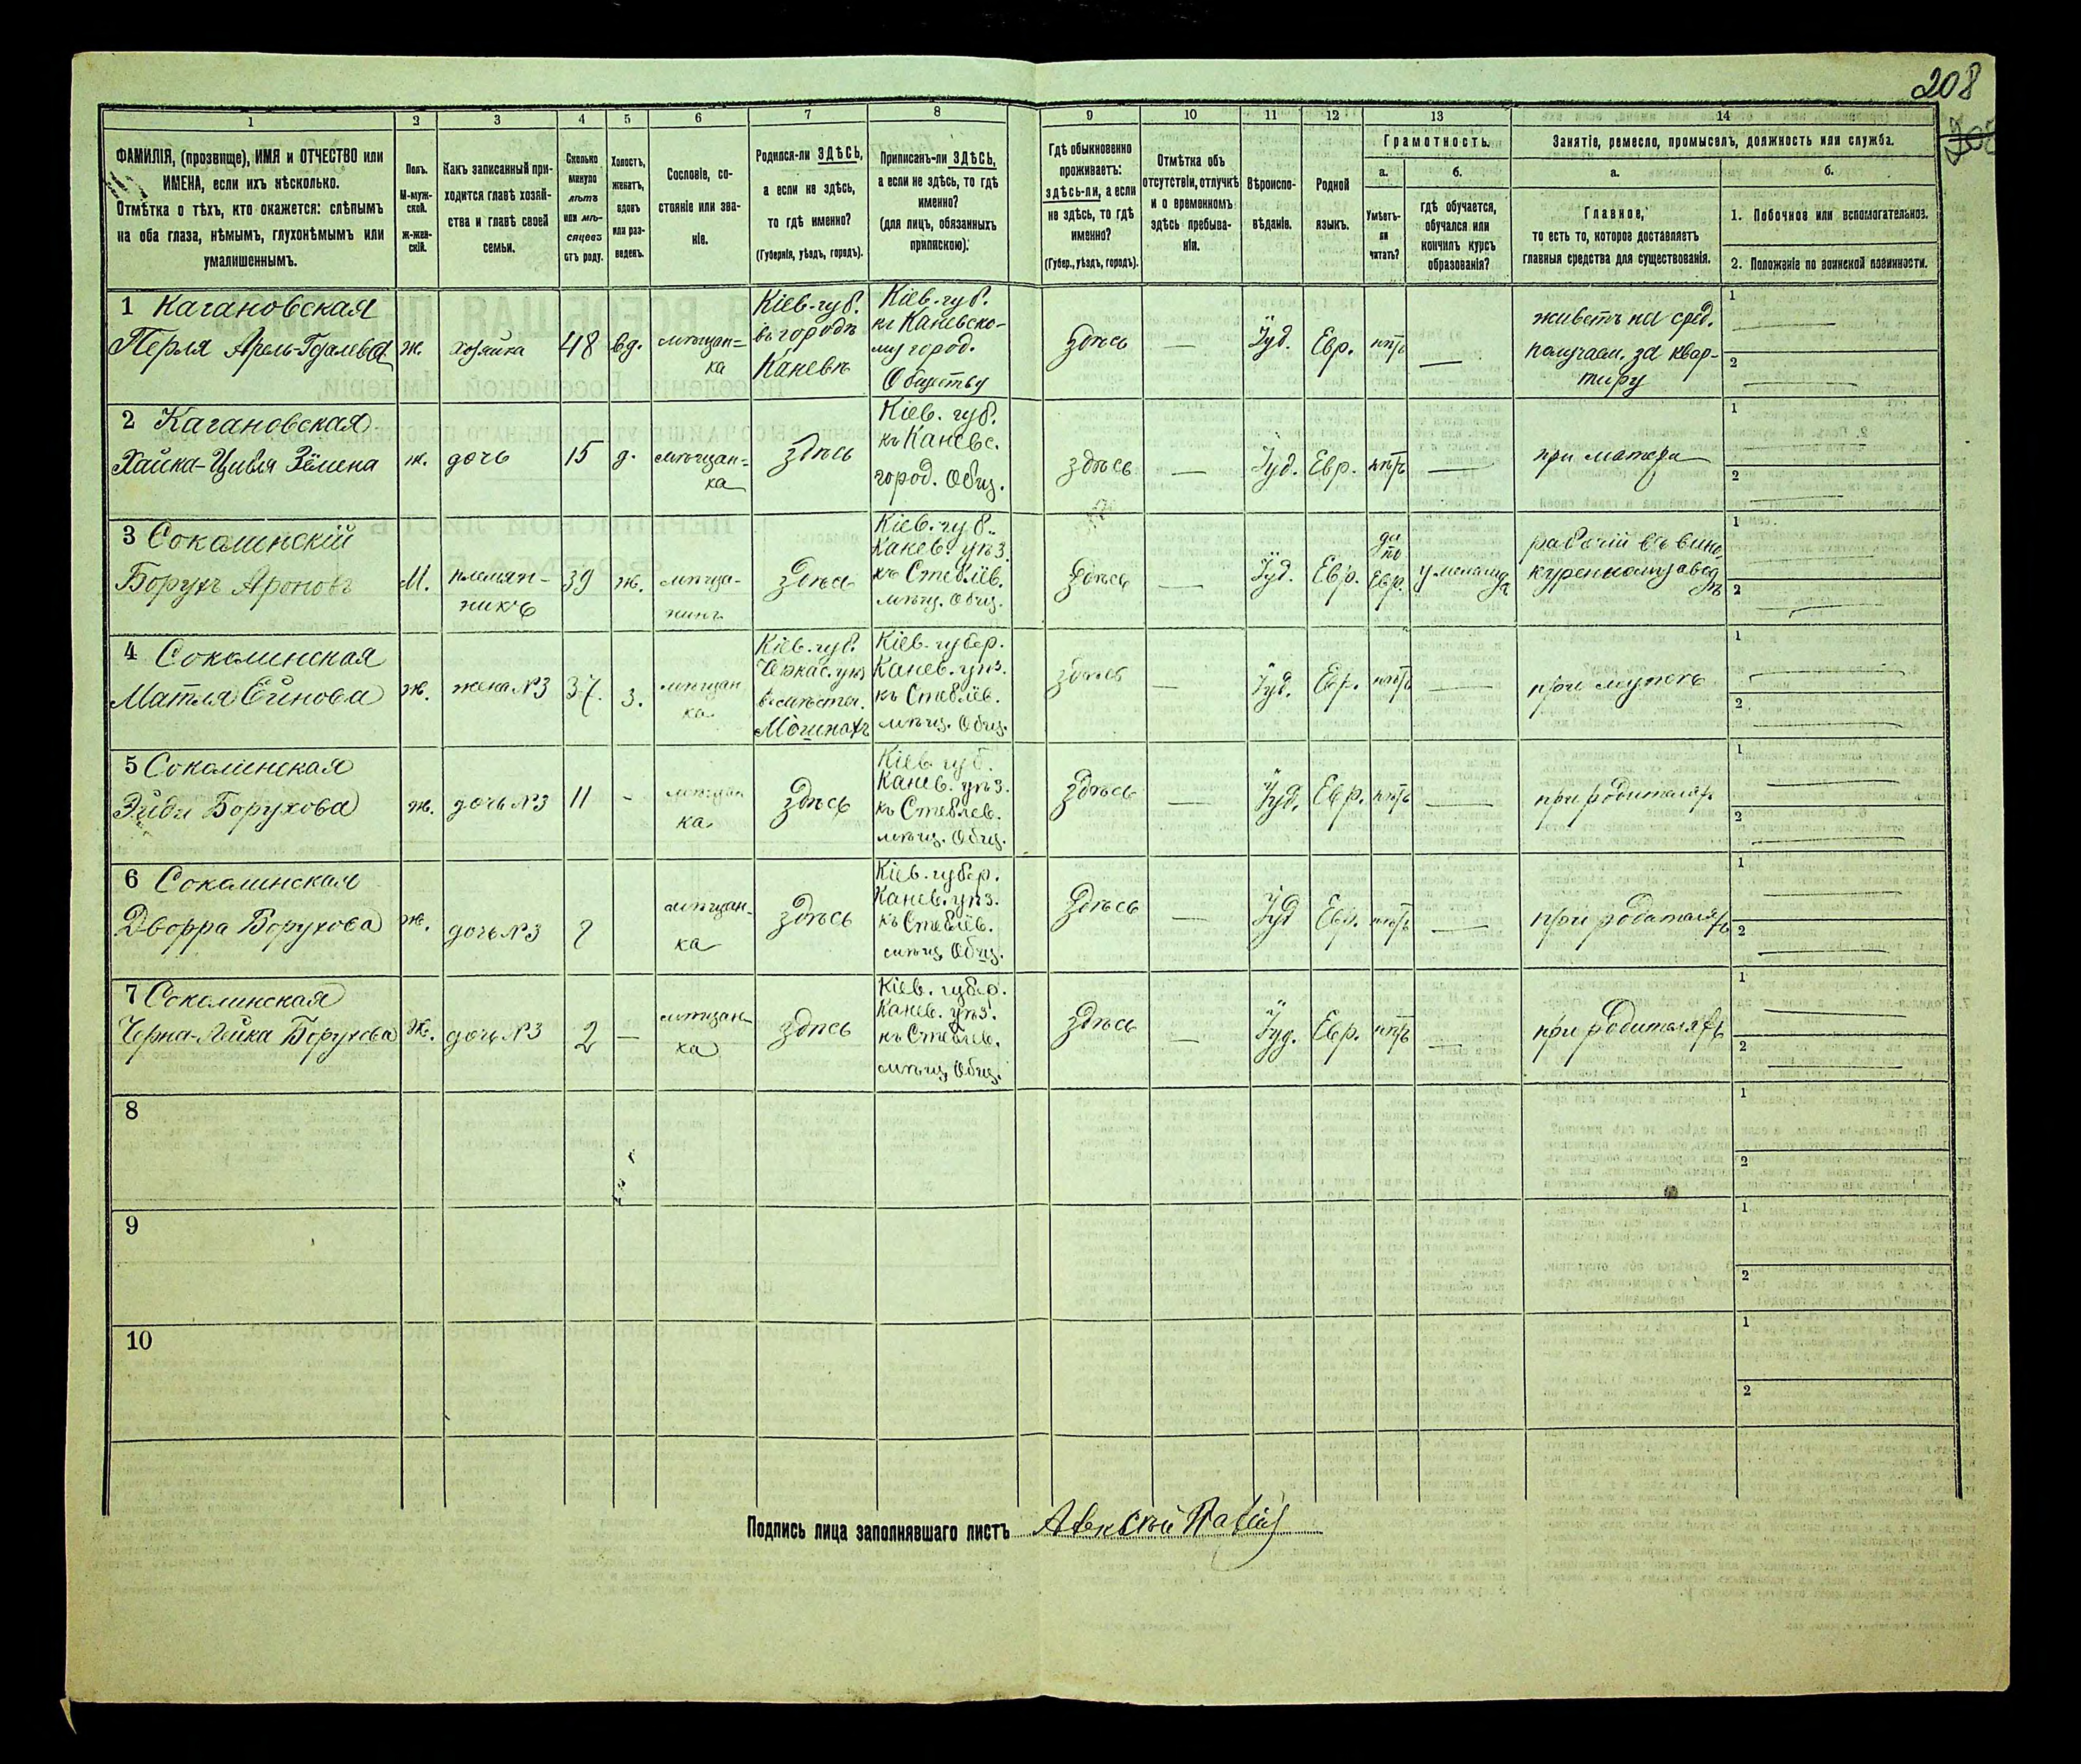 208
1 2 3 4 5 6 7 8 9 10 11 12 13 14
ФАМИЛІЯ, (прозвище), ИМЯ и ОТЧЕСТВО или
ИМЕНА, если ихъ нѣсколько.
Отмѣтка о тѣхъ, кто окажется: слѣпымъ
на оба глаза, нѣмымъ, глухонѣмымъ или
умалишеннымъ.
Полъ.
М-муж-
ской.
Ж-жен-
скій.
Какъ записанный при-
ходится главѣ хозяй-
ства и главѣ своей
семьи.
Сколько
минуло
лѣтъ
или мѣ-
сяцевъ
отъ роду.
Холостъ,
женатъ,
вдовъ
или раз-
веденъ.
Сословіе, со-
стояніе или зва-
ніе.
Родился-ли ЗДѢСЬ,
а если не здѣсь,
то гдѣ именно?
(Губернія, уѣздъ, городъ).
Приписанъ-ли ЗДѢСЬ,
а если не здѣсь, то гдѣ
именно?
(для лицъ, обязанныхъ
припискою).
Гдѣ обыкновенно
проживаетъ:
здѣсь-ли, а если
не здѣсь, то гдѣ
именно?
(Губер., уѣздъ, городъ).
Отмѣтка объ
отсутствіи, отлучкѣ
и о временномъ
здѣсь пребыва-
ніи.
Вѣроиспо-
вѣданіе.
Родной
языкъ.
Грамотность.
а.
Умѣетъ-
ли
читать?
б.
гдѣ обучается,
обучался или
кончилъ курсъ
образованія?
Занятіе, ремесло, промыселъ, должность или служба.
а.
Главное,
то есть то, которое доставляетъ
главныя средства для существованія.
б.
1. Побочное или вспомогательное.
2. Положеніе по воинской повинности.
1 Кагановская
Перля
ж.
хозяйка
48
вд.
мѣщан=
ка
Кіев. губ.
въ городѣ
Каневѣ
Кіев. губ.
къ Каневско-
му город.
Обществу
здѣсь
—
Іуд.
Евр.
нѣтъ
—
живетъ на сред.
получаем. за квар-
тиру
1
2
2 Кагановская
Хайка-Цивля
ж.
дочь
15
д.
мѣщан=
ка
здѣсь
Кіев. губ.
къ Каневс.
город. Общ.
здѣсь
—
Іуд.
Евр.
нѣтъ
—
при матери
1
2
3 Соколинскій
Борухъ Ароновъ
М.
племян-
никъ
39
ж.
мѣща-
нинъ
здѣсь
Кіев. губ.
Канев. уѣз.
къ Стеблёв.
мѣщ. Общ.
здѣсь
Іуд.
Евр.
да
по
Евр.
у меламда
рабочій въ вино-
куренномъ завод
ѣ
1
2
4 Соколинская
Матля
ж.
жена №3
37.
з.
мѣщан
ка
Кіев. губ.
Черкас. уѣз
Мошнахъ
Кіев. губер.
Канев. уѣз.
къ Стеблёв.
мѣщ. Общ.
здѣсь
—
Іуд.
Евр.
нѣтъ
—
при мужѣ
1
2
5 Соколинская
Борухова
ж.
дочь №3
11
-
мѣщан
ка
здѣсь
Кіев. губ.
Канев. уѣз.
къ Стеблев.
мѣщ. Общ.
здѣсь
—
Іуд.
Евр.
нѣтъ
—
при родителях
1
2
6 Соколинская
Дворра Борухова
ж.
дочь №3
мѣщан-
ка
здѣсь
Кіев. губер.
Канев. уѣз.
къ Стеблёв.
мѣщ. Общ.
здѣсь
—
Іуд
Евр.
нѣтъ
—
при родителяхъ
1
2
7 Соколинская
Черна-Лейка Борухова
ж.
дочь №3
2
—
мѣщан-
ка
здѣсь
Кіев. губер.
Канев. уѣз.
къ Стеблев.
мѣщ. Общ.
здѣсь
—
Іуд.
Евр.
нѣтъ
—
при родителяхъ
1
2
8
1
2
9
1
2
10
1
2
Подпись лица заполнявшаго листъ